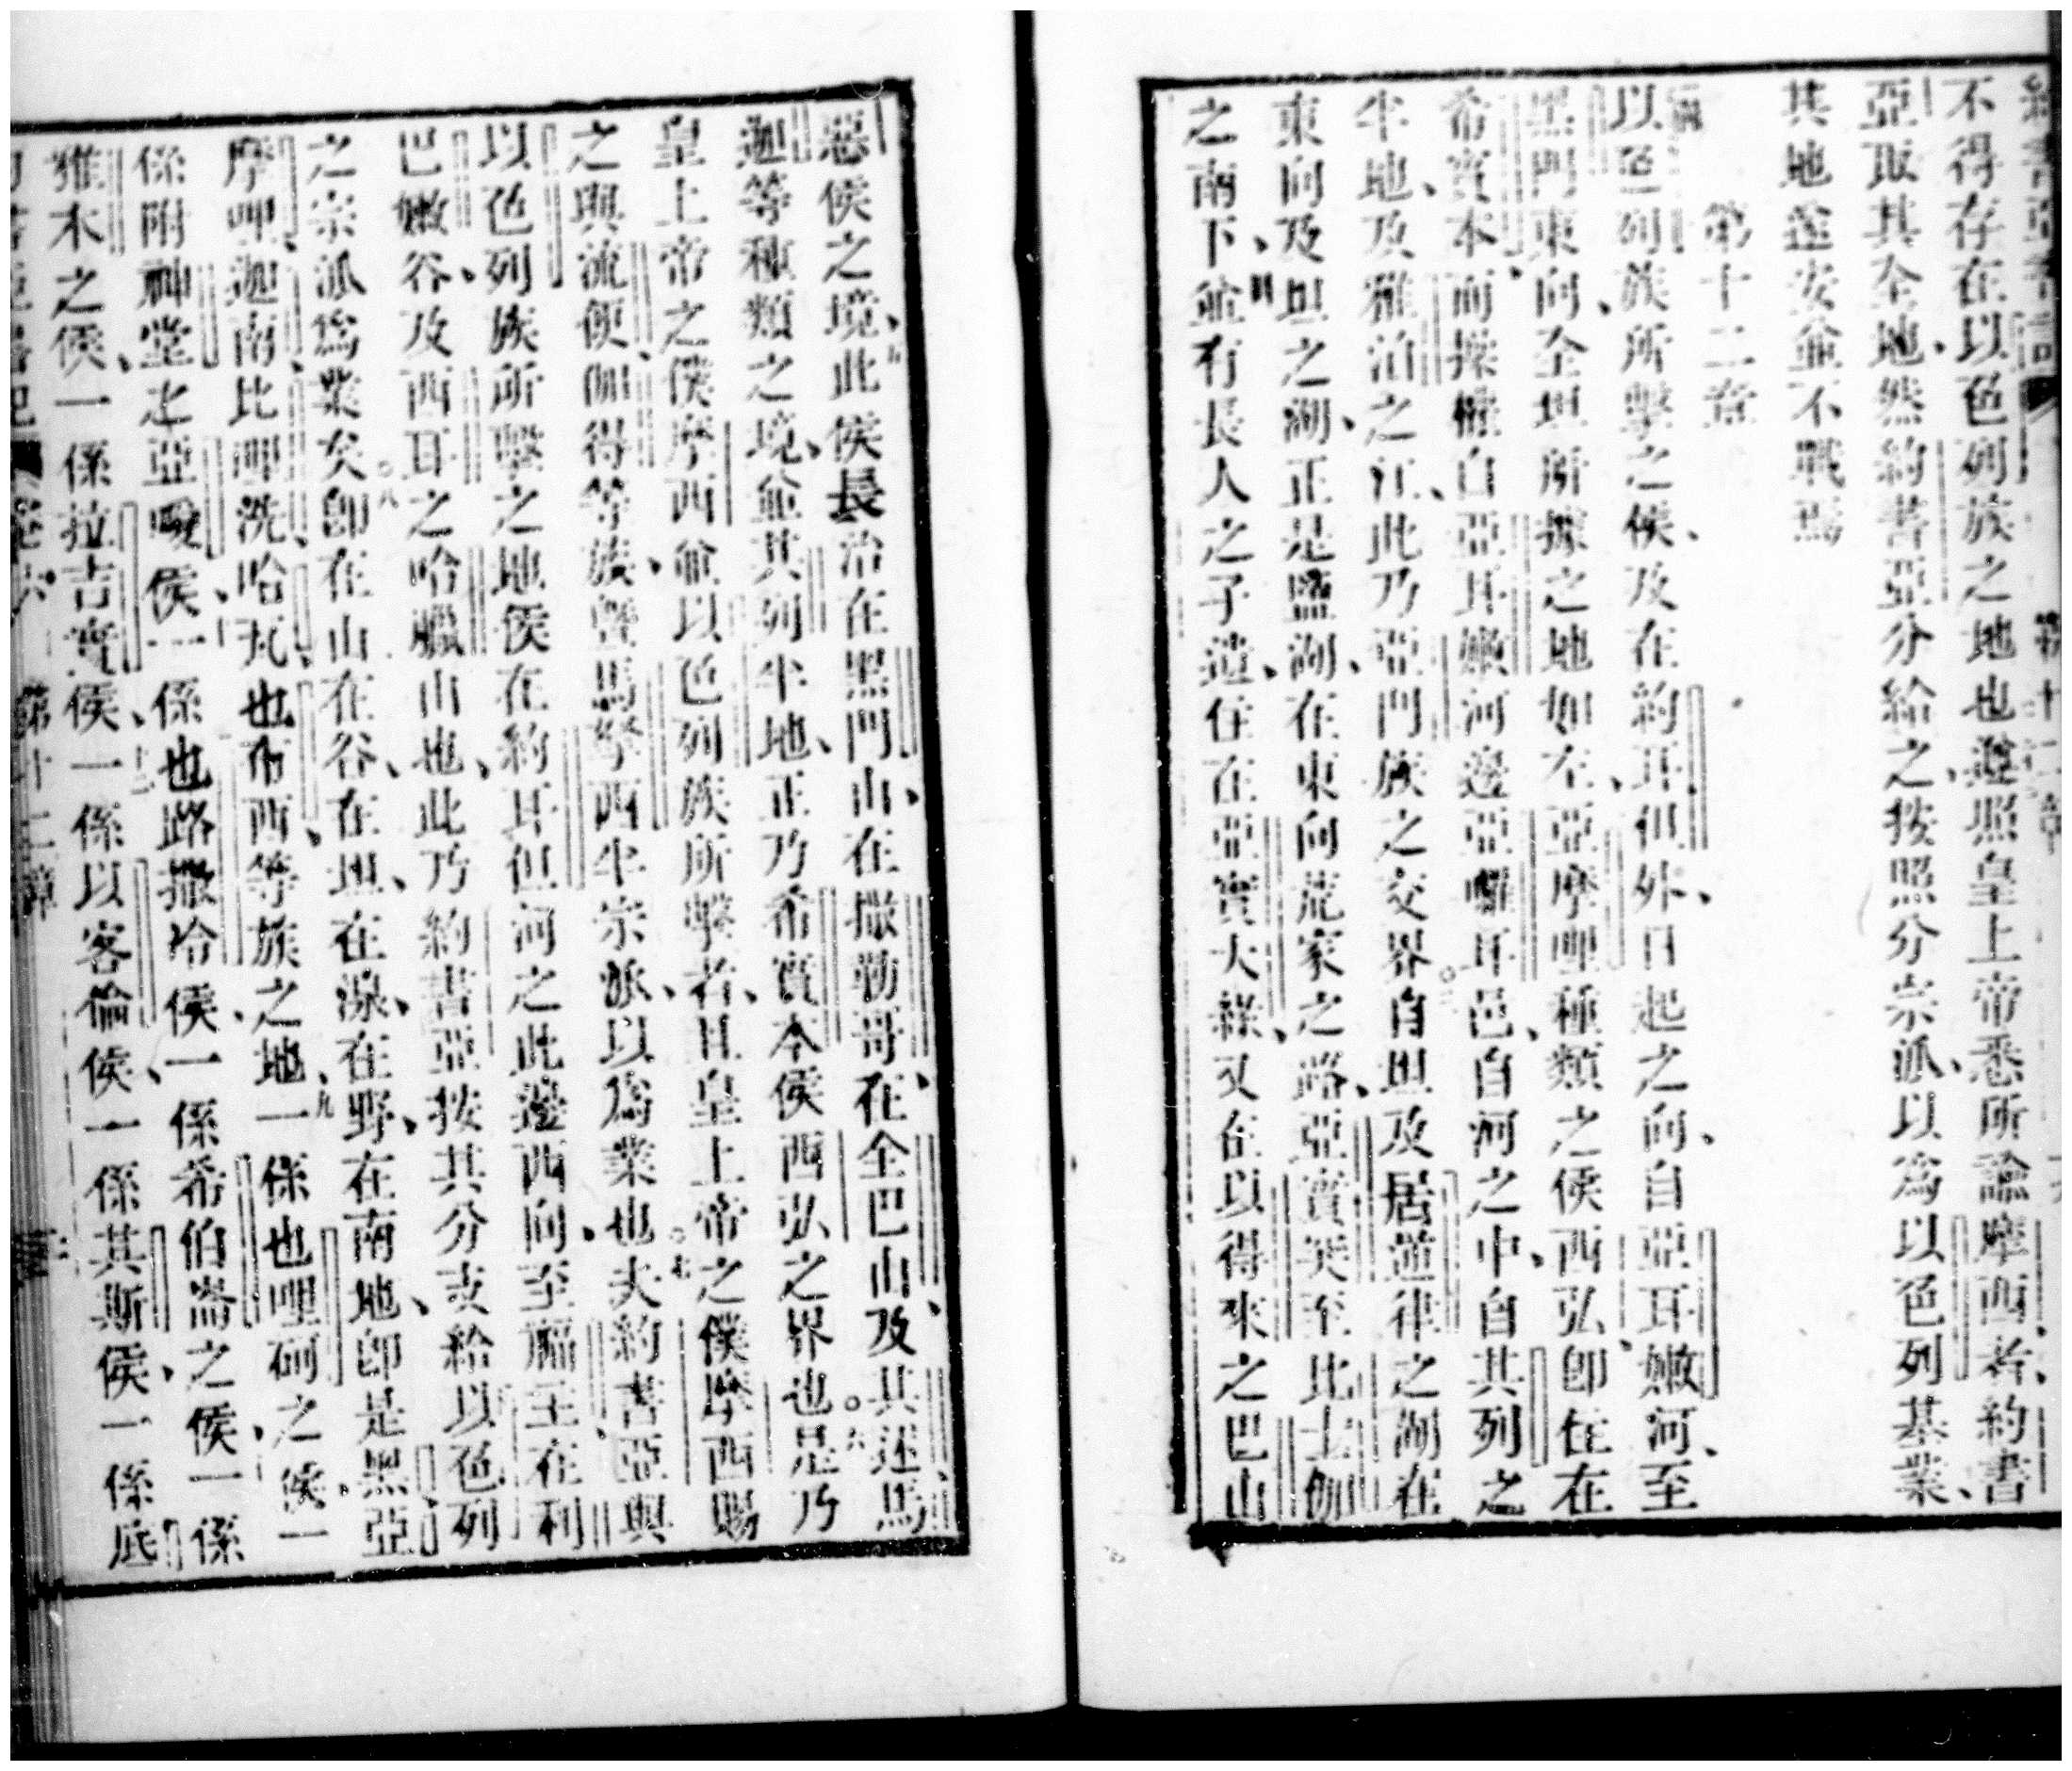 不得存在以色列族之地也遵照皇上帝悉所諭摩西者約書
亞取其全地然約書亞分給之按照分宗派以爲以色列基業
其地遂安並不戰焉
第十二章
以色列族所擊之侯及在約耳但外日起之向自亞耳嫩河至
黑門東向全坦所據之地如左亞摩哩種類之侯西弘卽住在
希實本而操權自亞耳嫩河邊亞囉耳邑自河之中自其列之
半地及雅泊之江此乃亞門族之交界自坦及居蓮律之湖在
東向及坦之湖正是鹽湖在東向荒家之路亞實突至比士伽
之南下並有長人之子遺住在亞實大綠又在以得來之巴山
惡侯之境此侯長治在黑門山在撒勒哥在全巴山及其述馬
迦等種類之境並其列半地正乃希實本侯西弘之界也是乃
皇上帝之僕摩西並以色列族所擊者且皇上帝之僕摩西賜
之與流便伽得等族暨馬拏西半宗派以爲業也夫約書亞與
以色列族所擊之地侯在約耳但河之此邊西向至在利
巴嫩谷及西耳之哈臘山也此乃約書亞按其分支給以色列
之宗派爲業矣卽在山在谷在坦在湶在野在南地卽是黑亞
摩哩迦南比哩洗哈瓦也布西等族之地一係也哩砢之侯一
係附神堂之亞噯侯一係也路撒冷侯一係希伯崙之侯一係
獾木之侯一係拉吉實侯一係以客倫侯一係其斯侯一係底